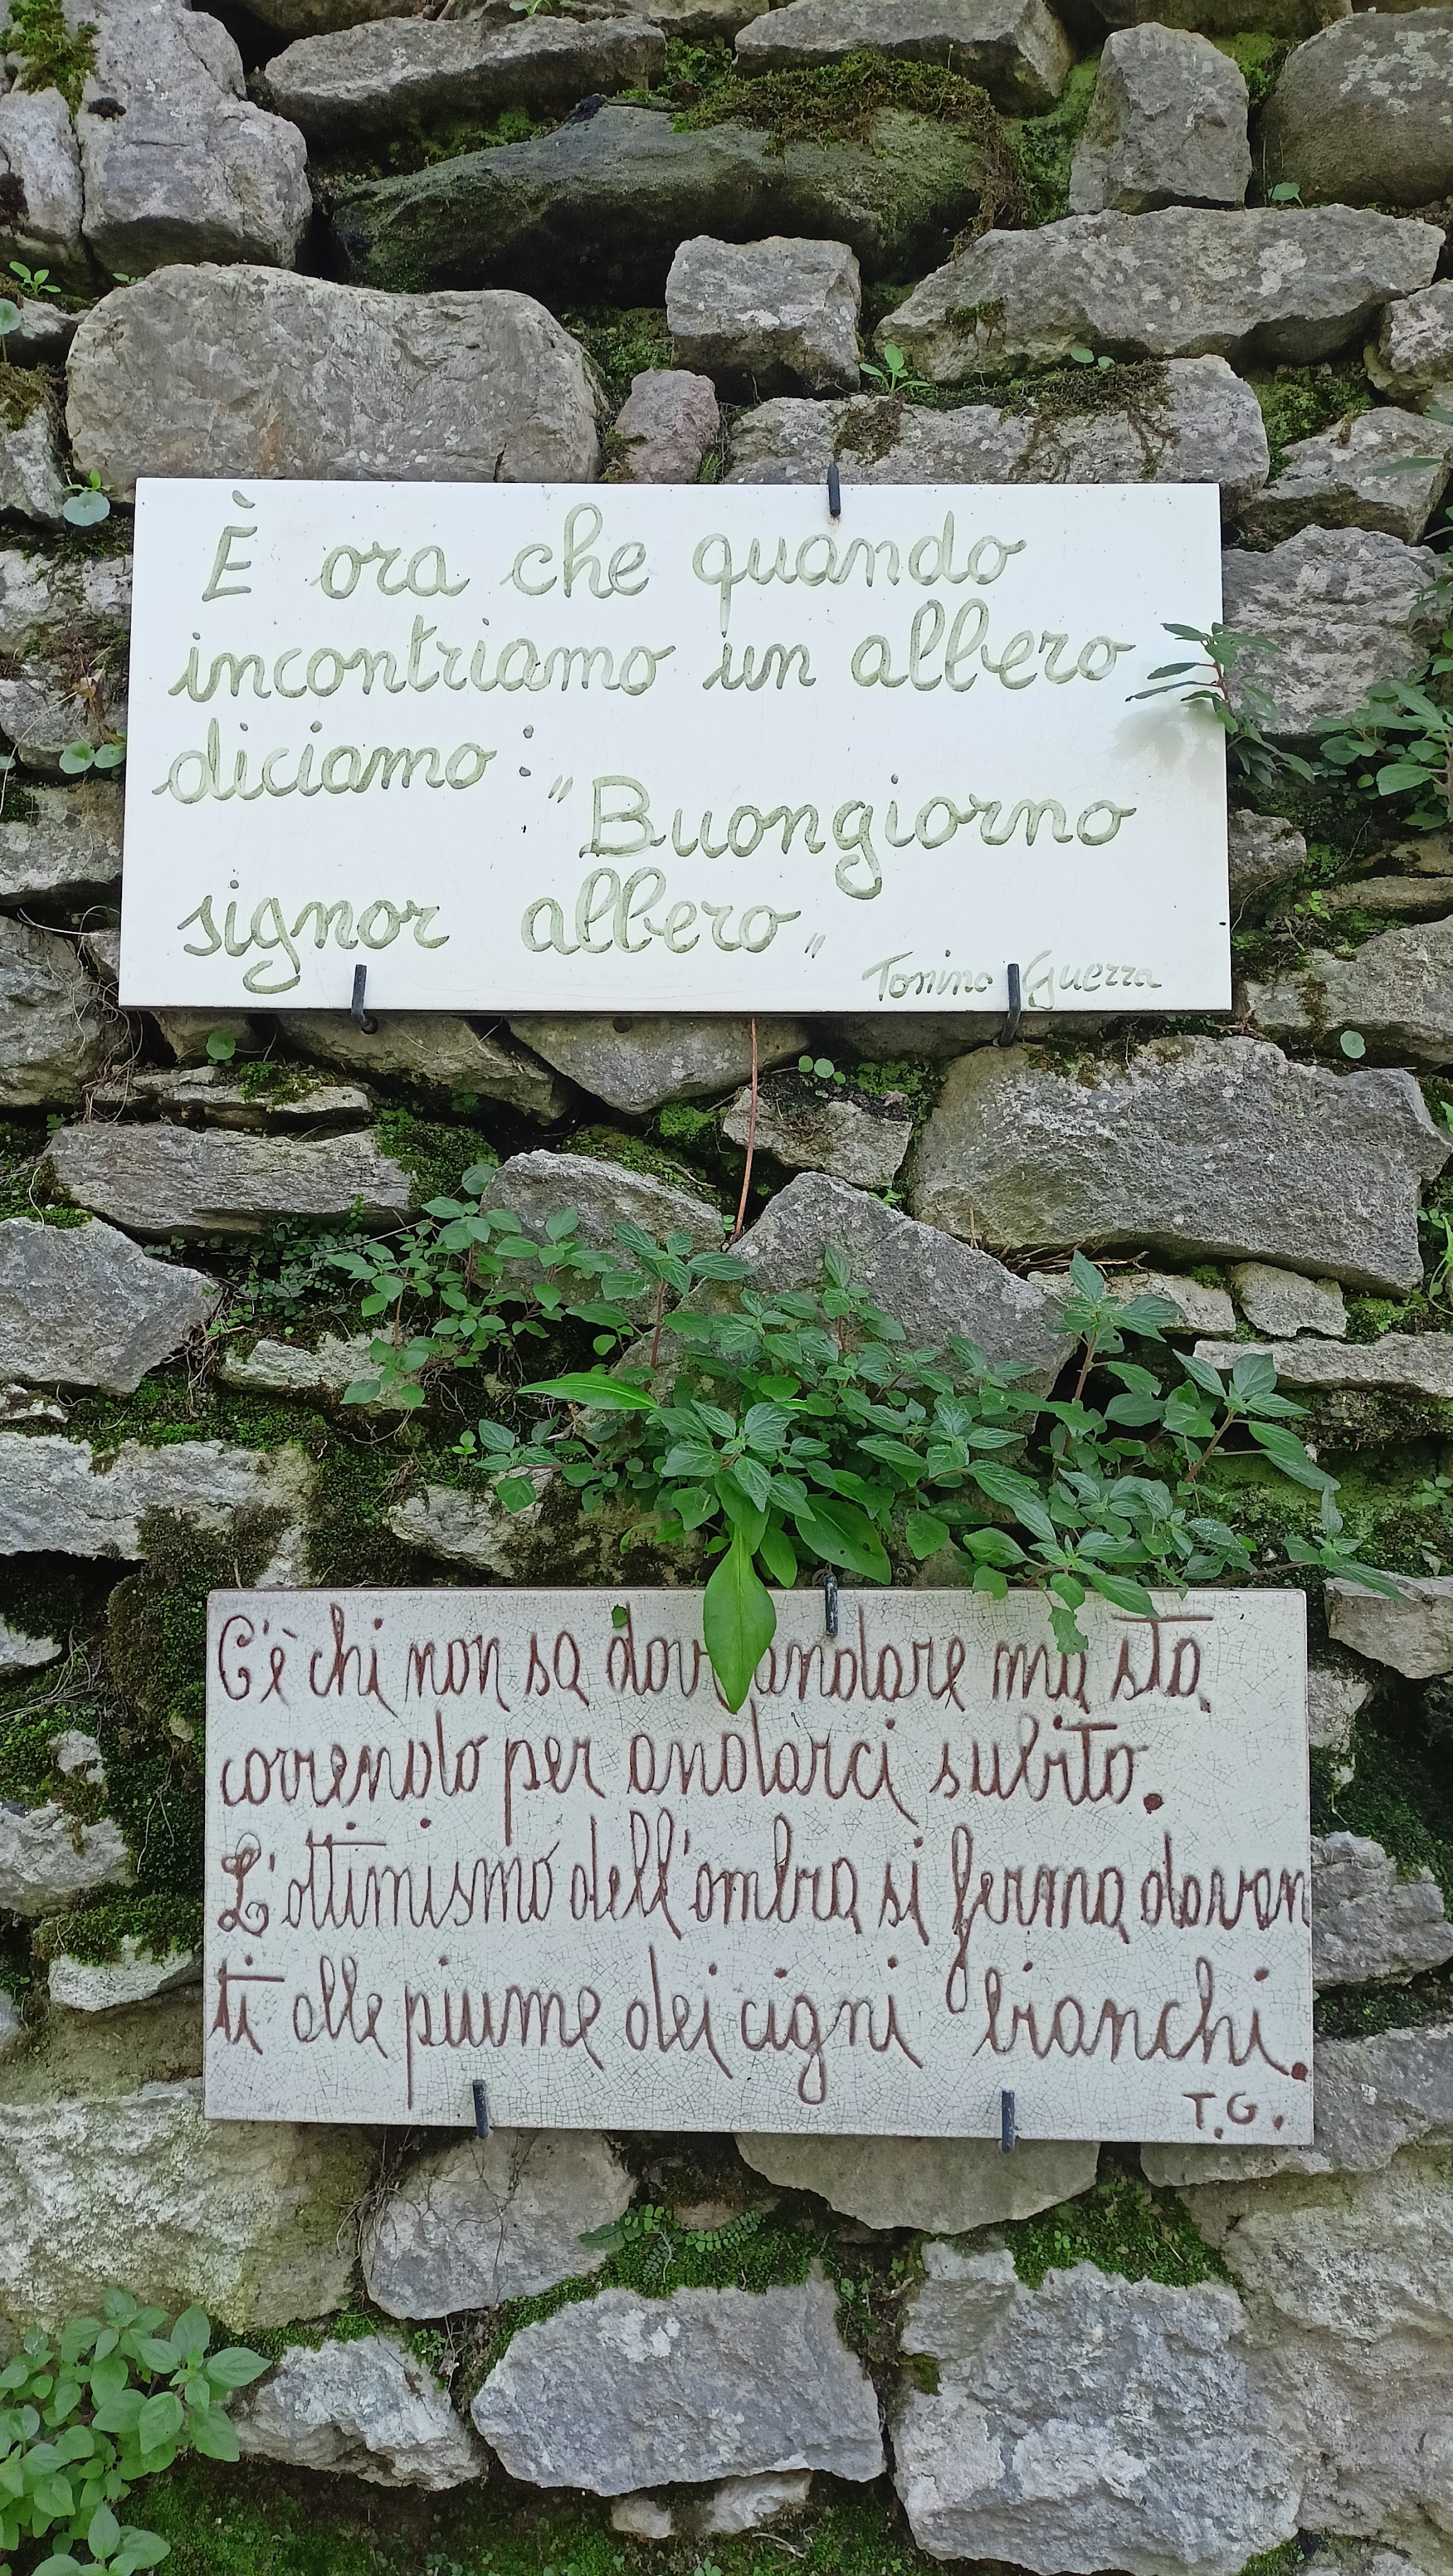 È ora che quando
incontriamo un albero
diciamo:
"Buongiorno
signor albero"
Tonino Guerra
C'è chi non sa dov andare ma sta
correndo per andarci subito.
L'ottimismo dell'ombra si ferma davan
ti alle piume dei cigni bianchi.
T.G.